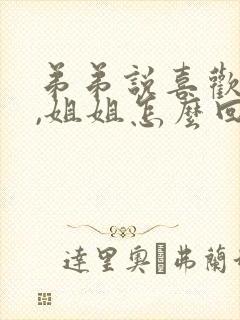 弟弟說喜歡
,姐姐怎麼回
達里奧·弗蘭